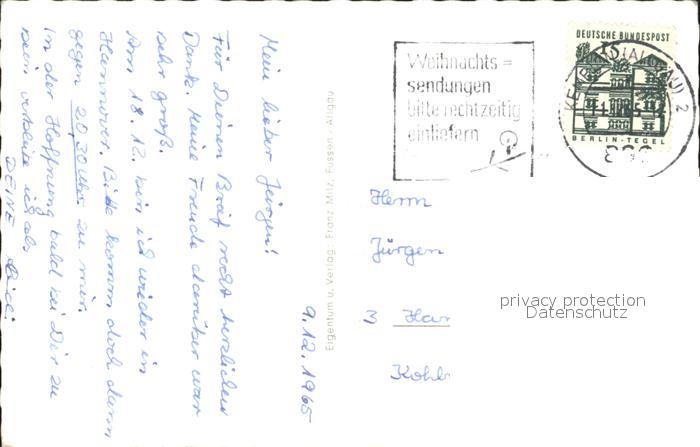 9.12.1965
Mein lieber Jürgen!
Für Deinen Brief recht herzlichen
Dank. Meine Freude darüber war
sehr groß.
Am 18.12. bin ich wieder in
Hannover. Bitte komm doch dann
gegen 20,30 Uhr zu mir.
In der Hoffnung bald bei Dir zu
sein verbleibe ich als
DEINE
Eigentum u. Verlag: Franz Milz, Füssen, Allgäu
Weihnachts=
sendungen
bitte rechtzeitig
einliefern
DEUTSCHE BUNDESPOST
BERLIN-TEGEL
KEMPTEN (ALLGÄU) 2
Herrn
Jürgen
3 Han
Kohl
privacy protection
Datenschutz